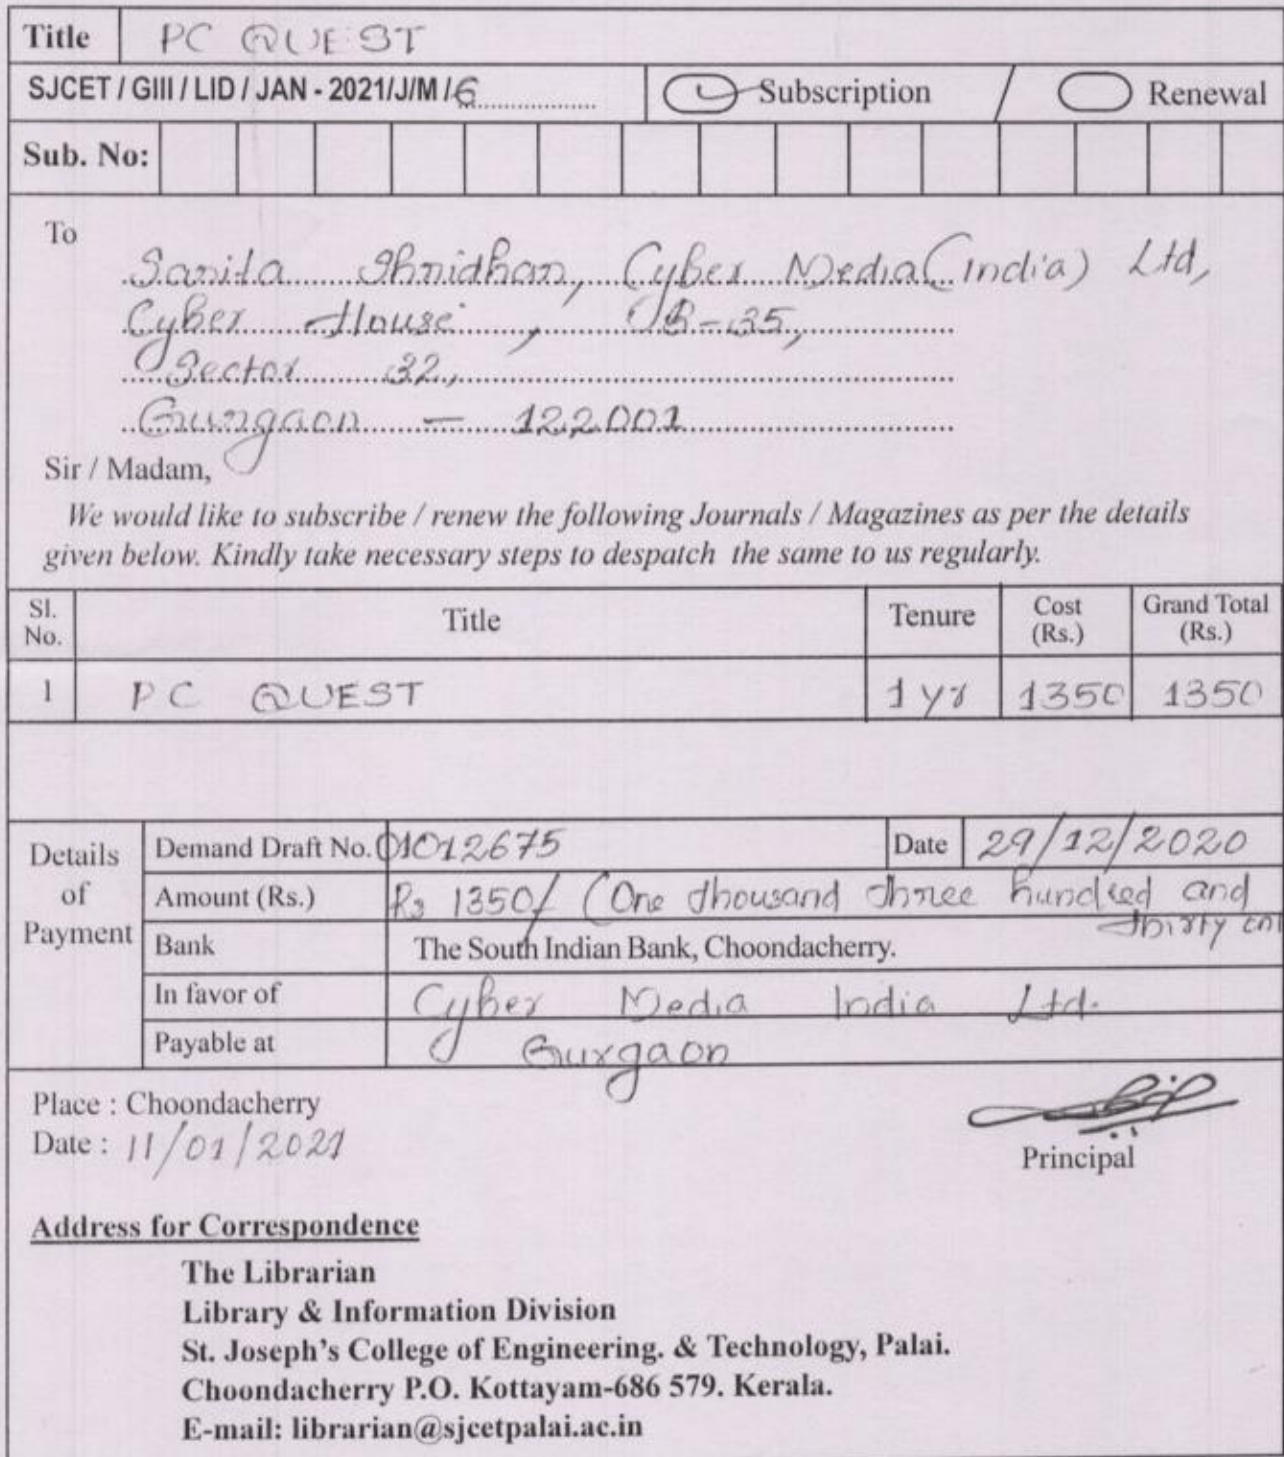 Title PC QUEST
SJCET / GIII / LID / JAN - 2021/J/M /6 Subscription / Renewal
Sub. No:
To
Sarita Shridhar, Cyber Media (India) Ltd,
Cyber House, B-35,
Sector 32,
Gurgaon - 122001
Sir / Madam,
We would like to subscribe / renew the following Journals / Magazines as per the details
given below. Kindly take necessary steps to despatch the same to us regularly.
Sl. No. Title Tenure Cost (Rs.) Grand Total (Rs.)
1 PC QUEST 1 yr 1350 1350
Details of Payment
Demand Draft No. 01012675 Date 29/12/2020
Amount (Rs.) Rs 1350/ (One thousand three hundred and
thirty
Bank The South Indian Bank, Choondacherry.
In favor of Cyber Media India Ltd.
Payable at Gurgaon
Place : Choondacherry
Date : 11/01/2021
Principal
Address for Correspondence
The Librarian
Library & Information Division
St. Joseph's College of Engineering. & Technology, Palai.
Choondacherry P.O. Kottayam-686 579. Kerala.
E-mail: librarian@sjcetpalai.ac.in